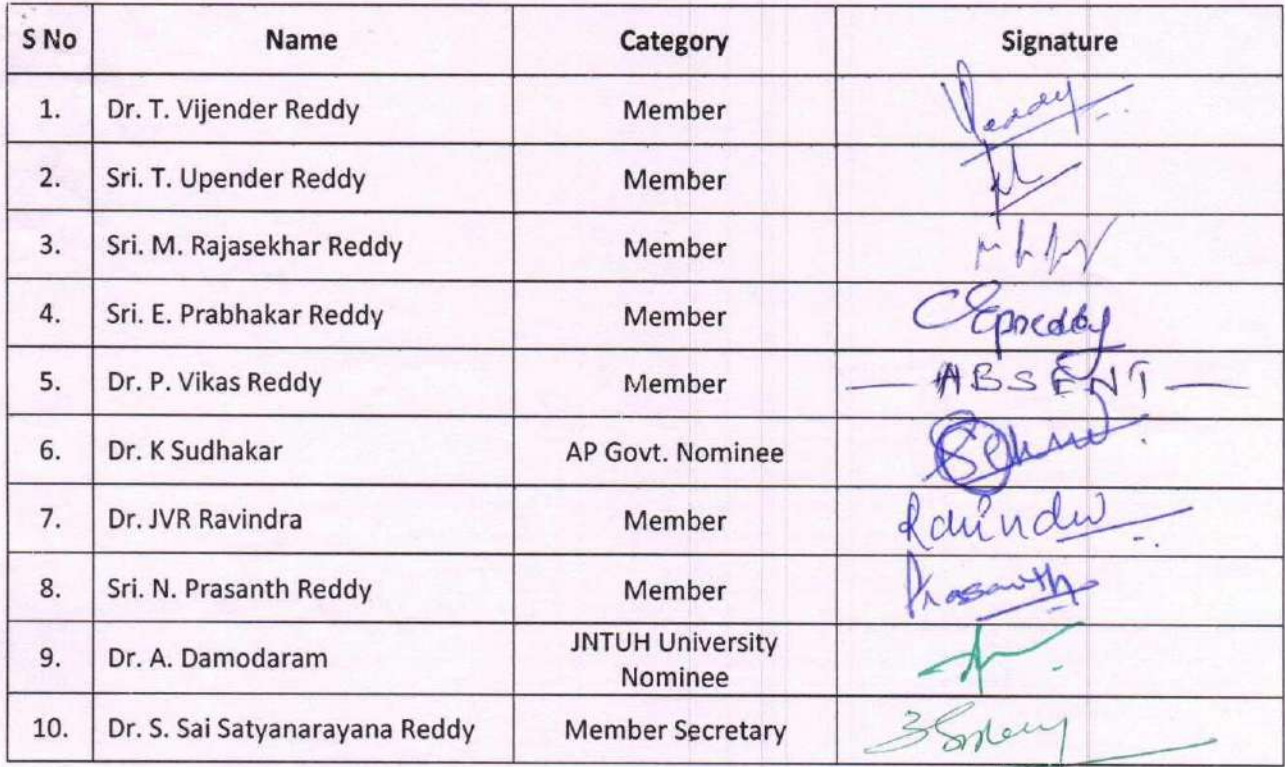 S No Name Category Signature
1. Dr. T. Vijender Reddy Member Reddy
2. Sri. T. Upender Reddy Member
3. Sri. M. Rajasekhar Reddy Member
4. Sri. E. Prabhakar Reddy Member Epreddy
5. Dr. P. Vikas Reddy Member — ABSENT —
6. Dr. K Sudhakar AP Govt. Nominee
7. Dr. JVR Ravindra Member Ravindra
8. Sri. N. Prasanth Reddy Member Prasanth
9. Dr. A. Damodaram JNTUH University
Nominee
10. Dr. S. Sai Satyanarayana Reddy Member Secretary